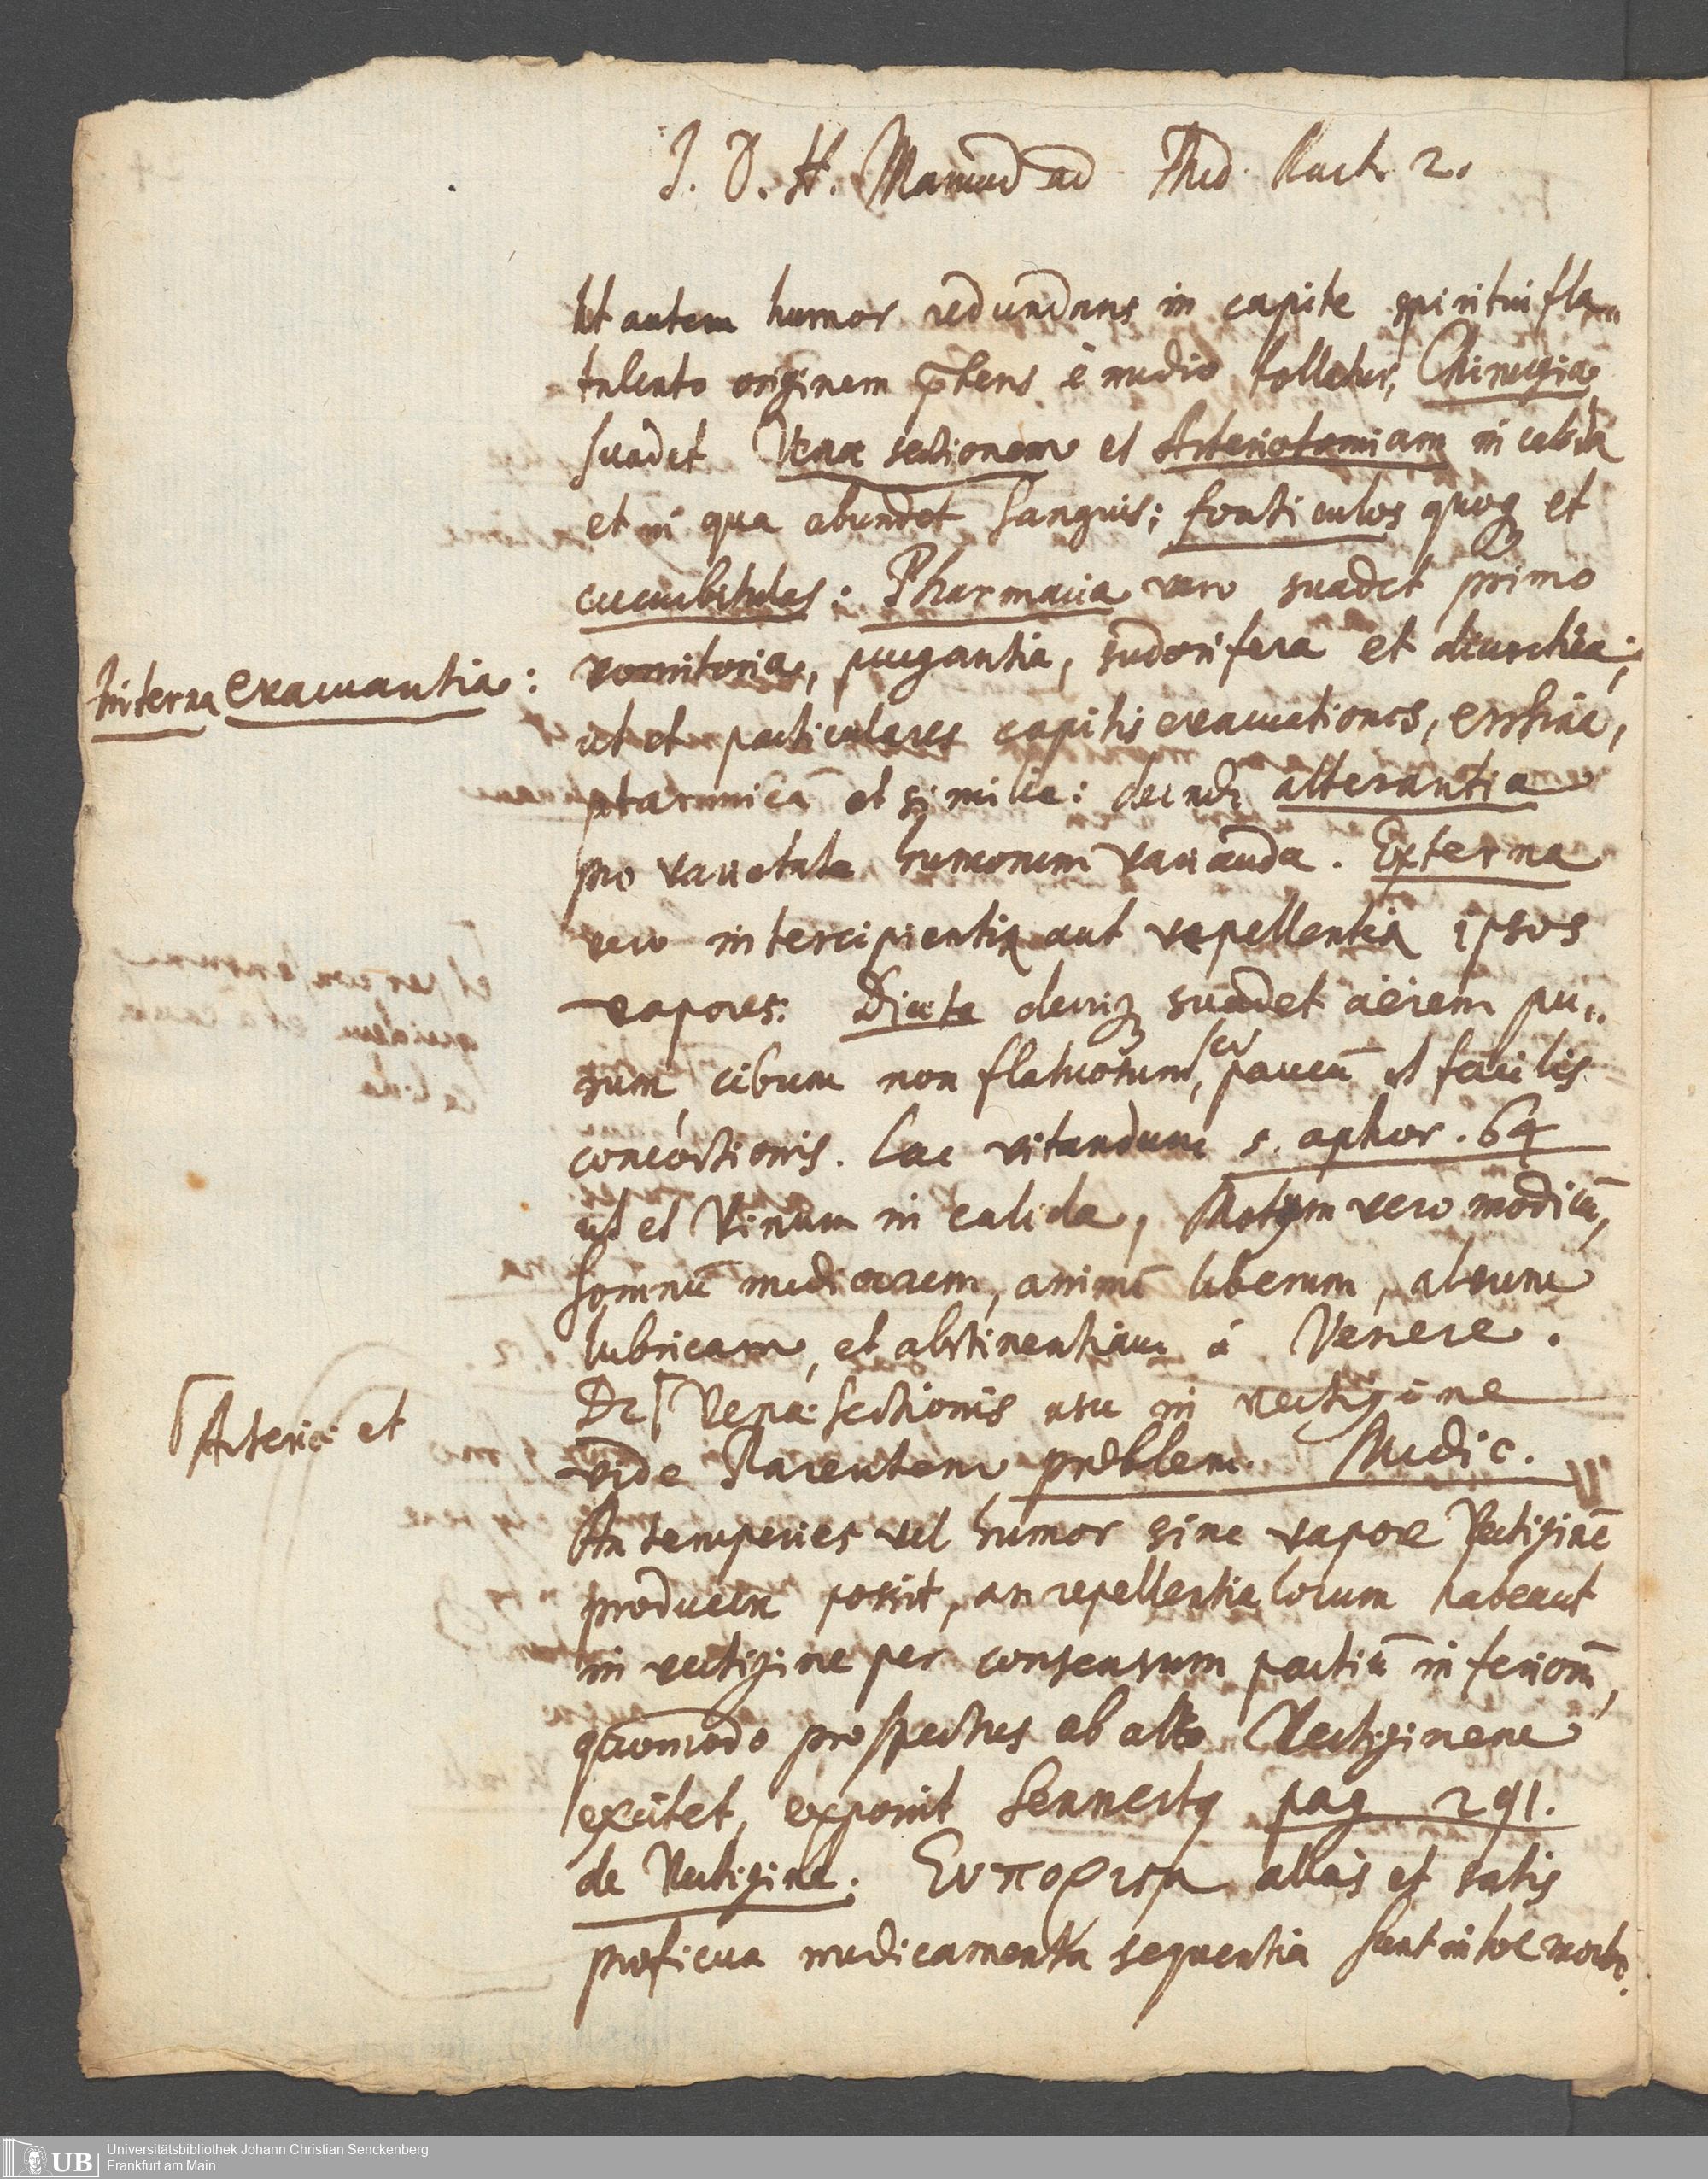 J. D. H. Manud ad Thd. Pract. 2.
Ut autem humor redundans in capite spiritui fla„
tulento originem p̄bens è medio tolletur, Chirurgia
suadet Venæ sectionem et Arteriotomiam in calida
et in qua abundet sanguis; fonticulos quoq et
cucurbitulas: Pharmacia vero suadet primo
Interna evacuantia:
vomitoria, purgantia, sudorifera et diuretica;
ut et particulares capitis evacuationes, errhina,
ptarmica et similia: deinde alterantia
pro varietate humorum varianda. Externa
vero intercipientia aut repellentia ipsos
vapores: Diæta deniq suadet aërem pu„
rum, cibum non flatuosum, sed paucū et facilis
concoctionis. Lac vitandum 5. aphor. 64
ut et Vinum in calida, Motum vero modicū,
somnū mediocrem, animū liberum, alvum
lubricam, et abstinentiam à Venere.
De Venæ sectionis usu in vertigine
Arteriæ et
vide Parentem problem. Medic.
An temperies vel humor sine vapore Vertiginē
producere possit, an repellentia locum habeant
in vertigine per consensum partiū inferiorū,
quomodo prospectus ab alto Vertiginem
excitet, exponit Sennertq pag 291.
de Vertigine. Ευπορισα alias et satis
proficua medicamenta sequentia sunt in hoc morbo.
Universitätsbibliothek Johann Christian Senckenberg
UB
Frankfurt am Main